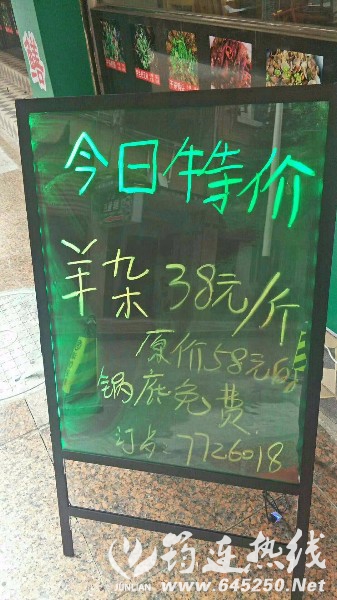 今日特价
羊杂 38元/斤
原价58元
锅底免费
订台 7726018
筠连热线
JUNLIAN www.645250.Net